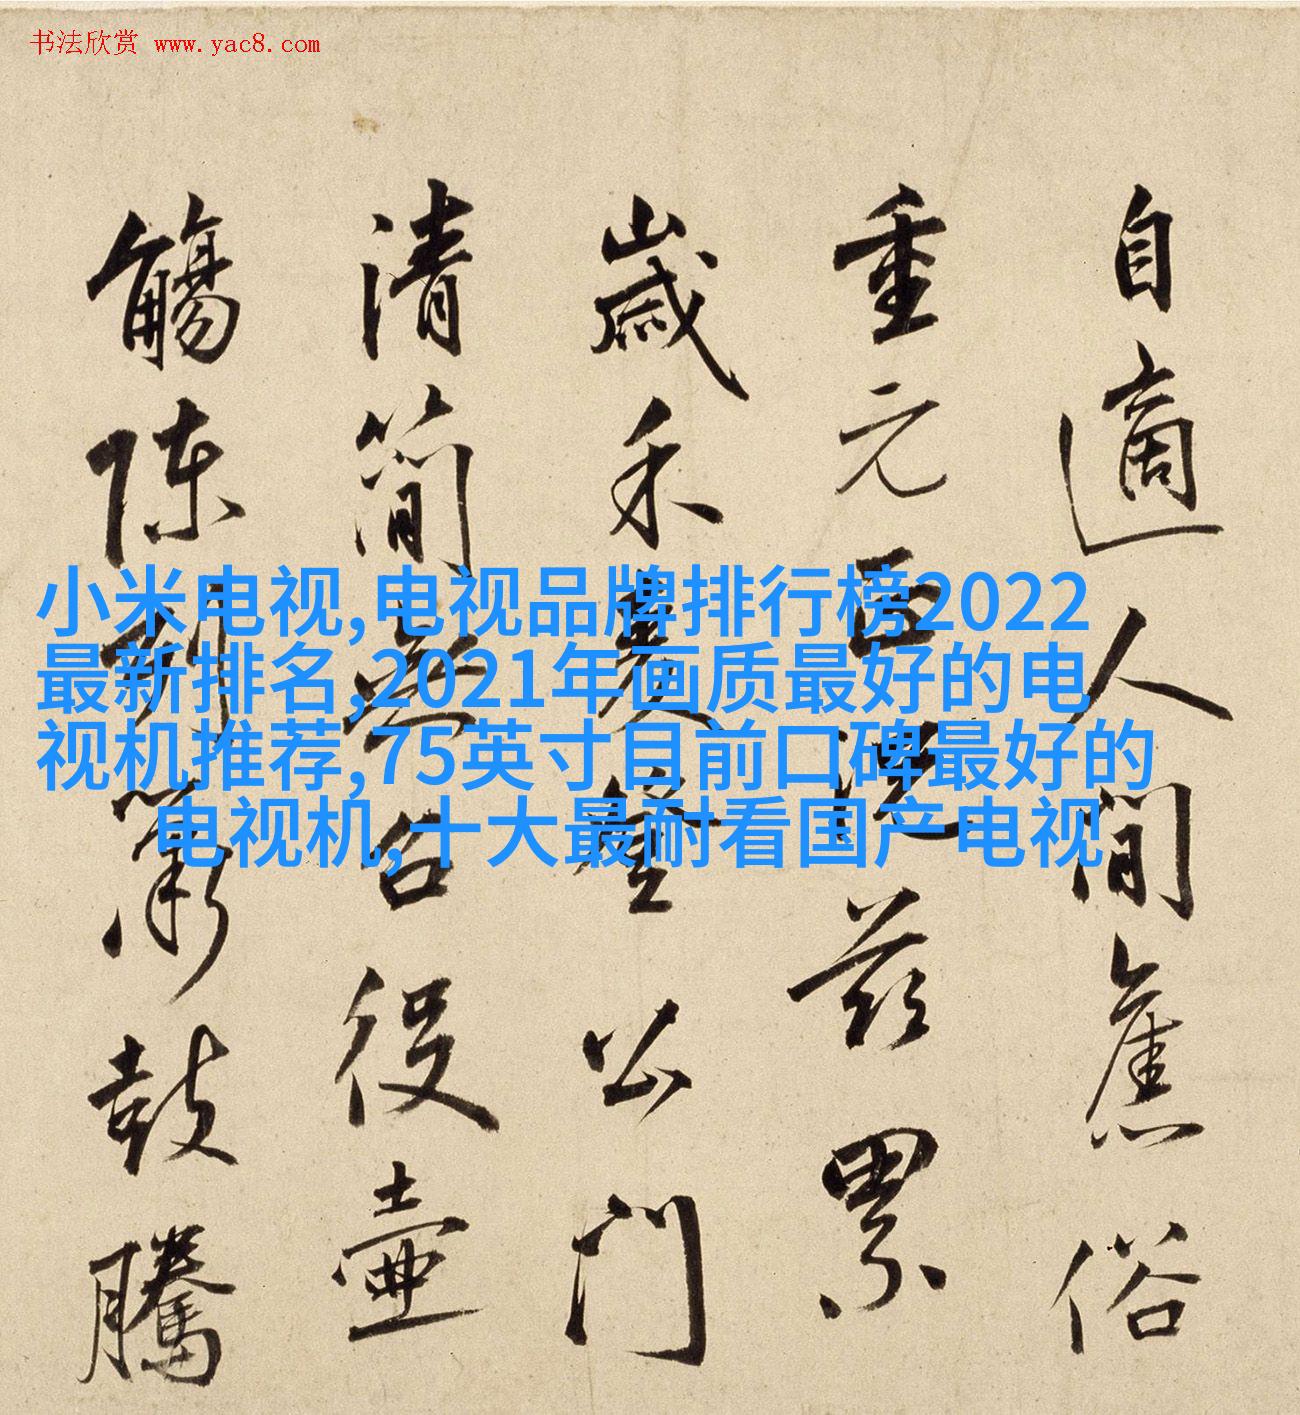 书法欣赏 www.yac8.com
自適人間舊俗
重元西浸茲累
歲禾登公門
清簡無台役壺
觴陳刻簫鼓騰
小米电视,电视品牌排行榜2022
最新排名,2021年画质最好的电
视机推荐,75英寸目前口碑最好的
电视机,十大最耐看国产电视